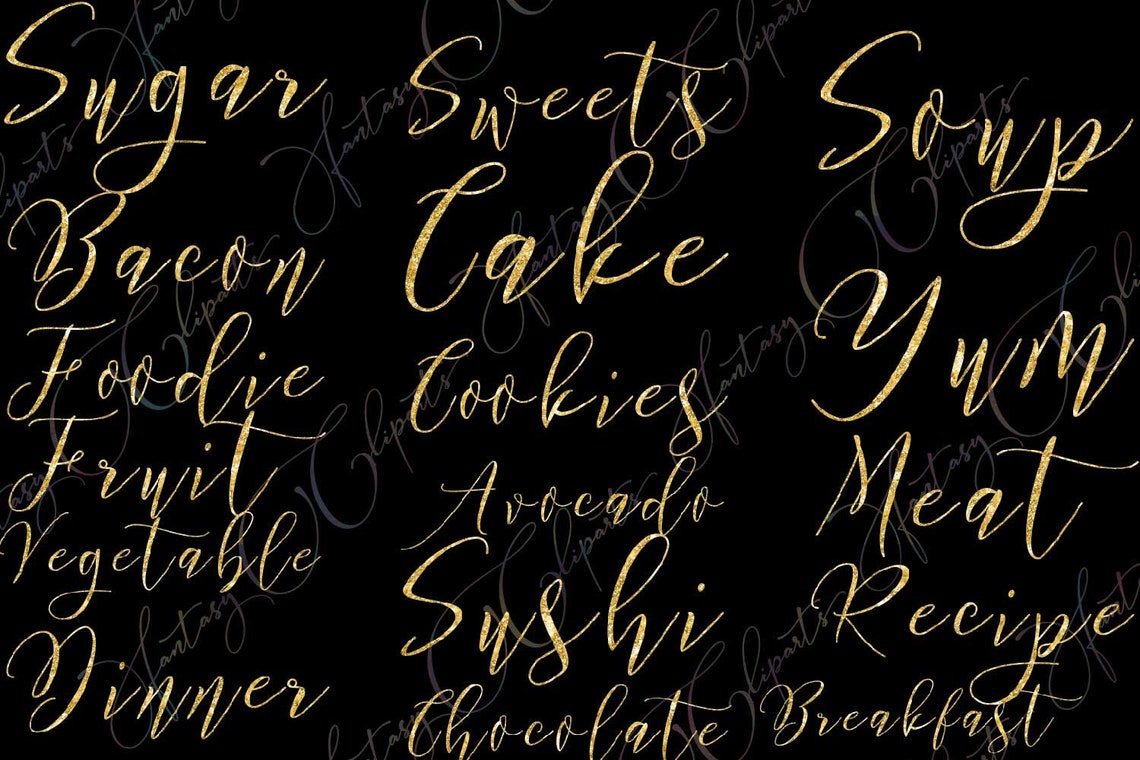 Sugar
Bacon
Foodie
Fruit
Vegetable
Dinner
Sweets
Cake
Cookies
Avocado
Sushi
Chocolate
Soup
Yum
Meat
Recipe
Breakfast
Fantasy Cliparts